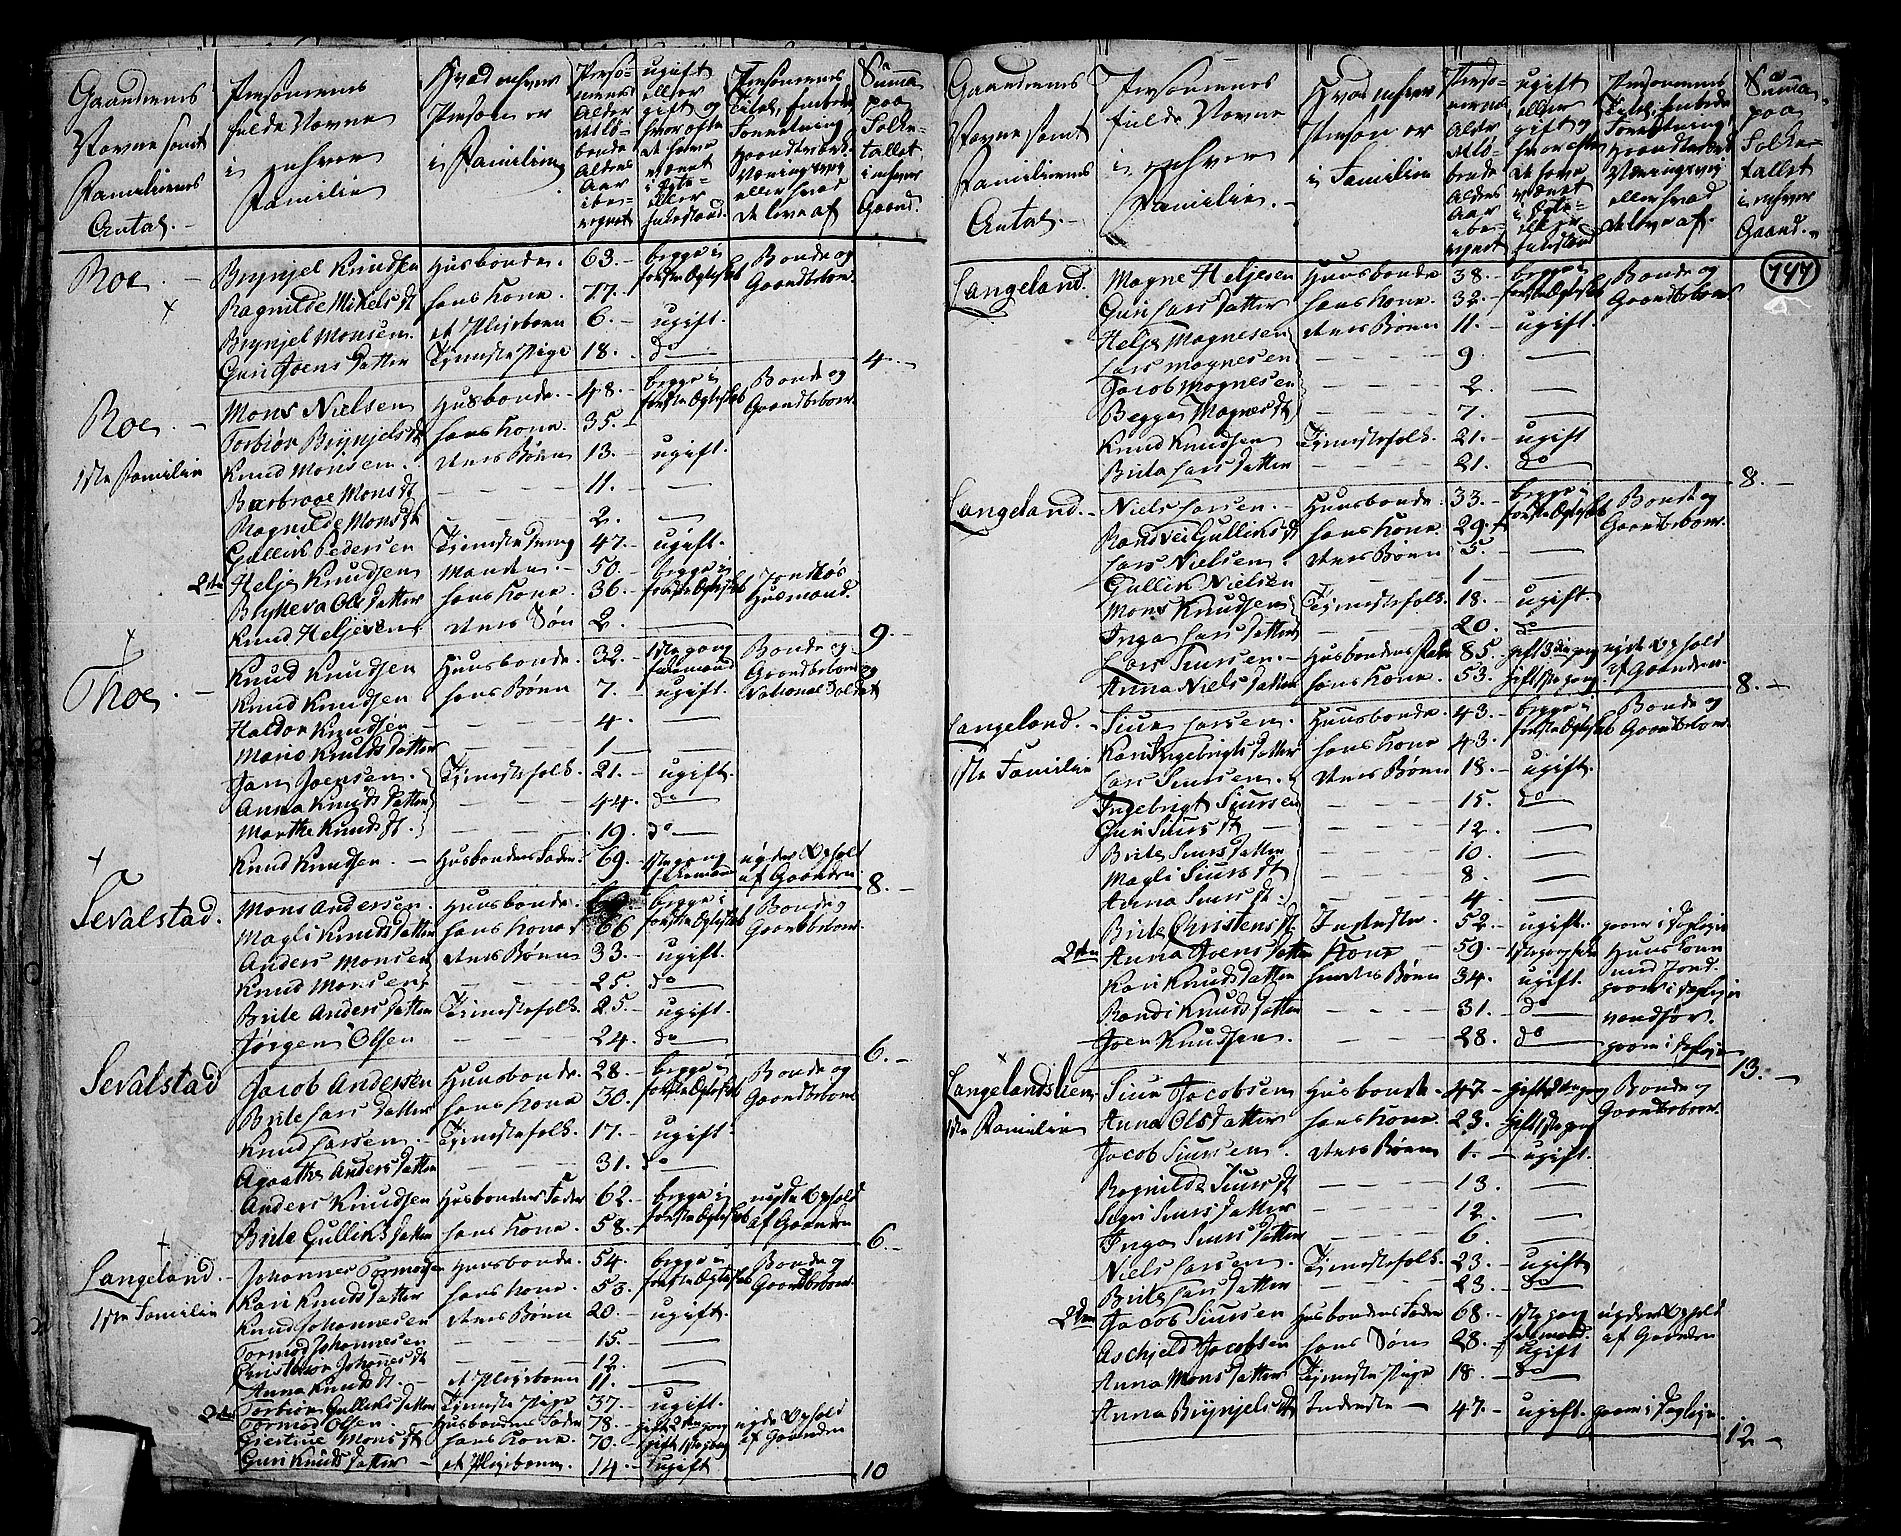 Gaardenes Navne samt Familiernes Antal. | Personernes fulde Navne i enhver Familie | Hvad enhver Person er i Familien | Personernes Alder det løbende Alders Aar iberegnet | ugift eller gift og hvor ofte de have været i Ægte- eller Enkestand. | Personernes Titel, Embede Forretning Haandverk Næringsvey eller hvad de leve af | Summa paa Folketallet i enhver Gaard.
Roe. Brynjel Knudsen Husbonde. 63. begge i første Ægteskab Bonde og Gaardbeboer
Ragnilde Mikels dt hans Kone. 77.
Brynjel Monsen. et Plejebørn 6. ugift.
Guri Joens datter Tjeneste Pige 18. do 4.
Roe. Mons Nielsen Husbonde. 48. begge i første Ægteskab Bonde og Gaardbeboer
1ste Familie Torbiør Brynjels dt hans Kone. 35.
Knud Monsen. deres Børn 13. ugift.
Barbroe Mons dt 11.
Ragnilde Mons dt 2.
Gullik Pedersen Tjeneste Dreng 47. ugift.
2den Helje Knudsen Manden. 50. begge i første Ægteskab Jordløs Husmand.
Olsdatter hans Kone. 36.
Knud Heljesen deres Søn 2. 9.
Thoe. Knud Knudsen Huusbonde. 32. 1ste gang Enkemand Bonde og Gaardbeboer og National Soldat
Knud Knudsen hans Børn 7. ugift
Haldor Knudsen 4.
Mario Knuds datter 1.
Jan Joensen. Tjenestefolk. 21. ugift.
Anna Knuds datter 44. do
Martha Knuds dt. 19. do
Knud Knudsen. Husbondens Fader 69. 1ste gang Enkemand nyder Ophold af Gaarden 8.
Sevalstad. Mons Andersen. Huusbonde. begge i første Ægteskab Bonde og Gaardbeboer.
Magli Knuds datter hans Kone 66
Anders Monsen deres Børn 33. ugift.
Knud Monsen 25. do
Brite Anders datter Tjenestefolk. 25. ugift.
Jørgen Olsen 24. do 6.
Sevalstad Jacob Andersen Huusbonde. 28. begge i første Ægteskab Bonde og Gaardbeboer
Brite Lars datter hans Kone 30.
Knud Larsen. Tjenestefolk. 17. ugift.
Agaathe Anders datter 31. do
Anders Knudsen Husbondens Fader 62. begge i første Ægteskab nyde Ophold af Gaarden
Brite Gulliks datter hans Kone. 58. 6.
Langeland. Johannes Tormodsen Huusbonde. 54. begge i første Ægteskab Bonde og Gaardbeboer.
1ste Familie Kari Knuds datter hans Kone. 53.
Knud Johannesen deres Børn 20. ugift.
Tormod Johannesen 15.
Johannes dt 12.
Anna Knuds dt. et Plejebørn 11.
Torbiør Gulliks datter Tjeneste Pige 37. ugift
2den Tormod Olsen. Husbondens Fader 78. gift 2den gang nyde Ophold af Gaarden
Giertrue Mons dt hans Kone. 70. gift 1ste gang
Guri Knuds datter et Plejebørn 14. ugift 10
Gaardenes Navne samt Familiernes Antal. | Personernes fulde Navne i enhver Familie. | Hvad enhver Person er i Familien | Personernes Alder det løbende Alders Aar iberegnet | ugift eller gift og hvor ofte de have været i Ægte- eller Enkestand | Personernes Titel, Embede Forretning, Haandverk Næringsvey eller hvad de leve af. | Summa paa Folketallet i enhver Gaard.
747
Langeland. Magne Heljesen Huusbonde 38. begge i første Ægteskab Bonde og Gaardbeboer
Guri Lars datter hans Kone. 32.
Helje Magnesen deres Børn 11. ugift.
Lars Magnesen 9.
Jacob Magnesen 2.
Begga Magnes dt 7.
Knud Knudsen Tjenestefolk. 21. ugift
Brita Lars datter 21. do 8.
Langeland. Niels Larsen. Huusbonde. 33. begge i første Ægteskab Bonde og Gaardbeboer.
Randvei Gulliks dt hans Kone. 29.
Lars Nielsen. deres Børn 5.
Gullik Nielsen 1
Mons Knudsen Tjenestefolk. 18. ugift.
Inga Lars datter 20. do
Lars Siursen. Husbondens Fader 85. gift 3die gang nyde Ophold af Gaarden.
Anna Niels datter hans Kone. 53. gift 1ste gang 8.
Langeland. Siur Larsen. Huusbonde. 43. begge i første Ægteskab Bonde og Gaardbeboer.
1ste Familie Kari Ingebrigts datter hans Kone 43.
Lars Siursen. deres Børn 18. ugift.
Ingebrigt Siursen 15. do
Guri Siurs dt 12.
Brite Siurs datter 10.
Magli Siurs dt 8.
Anna Siurs dt. 4.
Brite Christens dt Inderster. 52. ugift. gaaer i Dagleje
2den Anna Joens datter Kone 59. Huus Kone med Jord.
Kari Knuds datter hendes Børn 34. ugift. gaaer i Dagleje
Randi Knuds datter 31. do vanfør.
Joen Knudsen. 28. do gaaer i Dagleje 13.
Langelandslien. Siur Jacobsen Husbonde. 47. gift 2den gang Bonde og Gaardbeboer.
1ste Familie Anna Ols datter hans Kone. 23. gift 1ste gang
Jacob Siursen. deres Børn 1. ugift.
Ragnilde Siurs dt 13.
Sigri Siurs datter 12.
Inga Siurs datter 6.
Niels Larsen. Tjenestefolk. 23. ugift
Brite Lars datter 23. do
2den Jacob Siursen Husbondens Fader 68. 1ste gang Enkemand. nyder Ophold af Gaarden
Aschjeld Jacobsen hans Søn 28. ugift
Anna Mons datter Tjeneste Pige 18. do
Anna Brynjels dt Inderste 47. ugift. gaaer i Dagleje. 12.